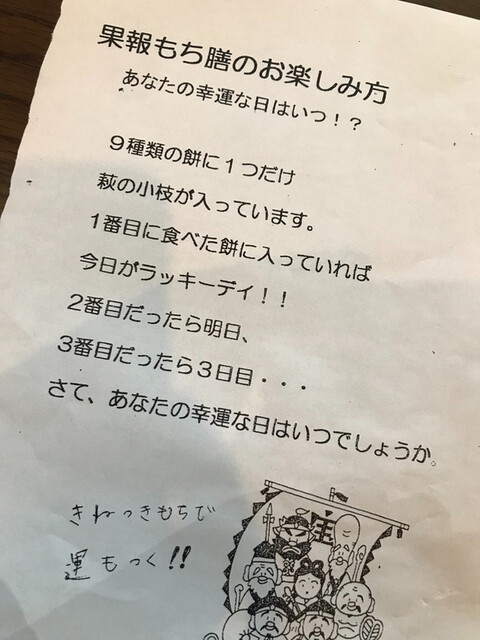 果報もち膳のお楽しみ方
あなたの幸運な日はいつ！？
９種類の餅に１つだけ
萩の小枝が入っています。
１番目に食べた餅に入っていれば
今日がラッキーデイ！！
２番目だったら明日、
３番目だったら３日目・・・
さて、あなたの幸運な日はいつでしょうか。
きねつきもちで
運もつく!!
宝